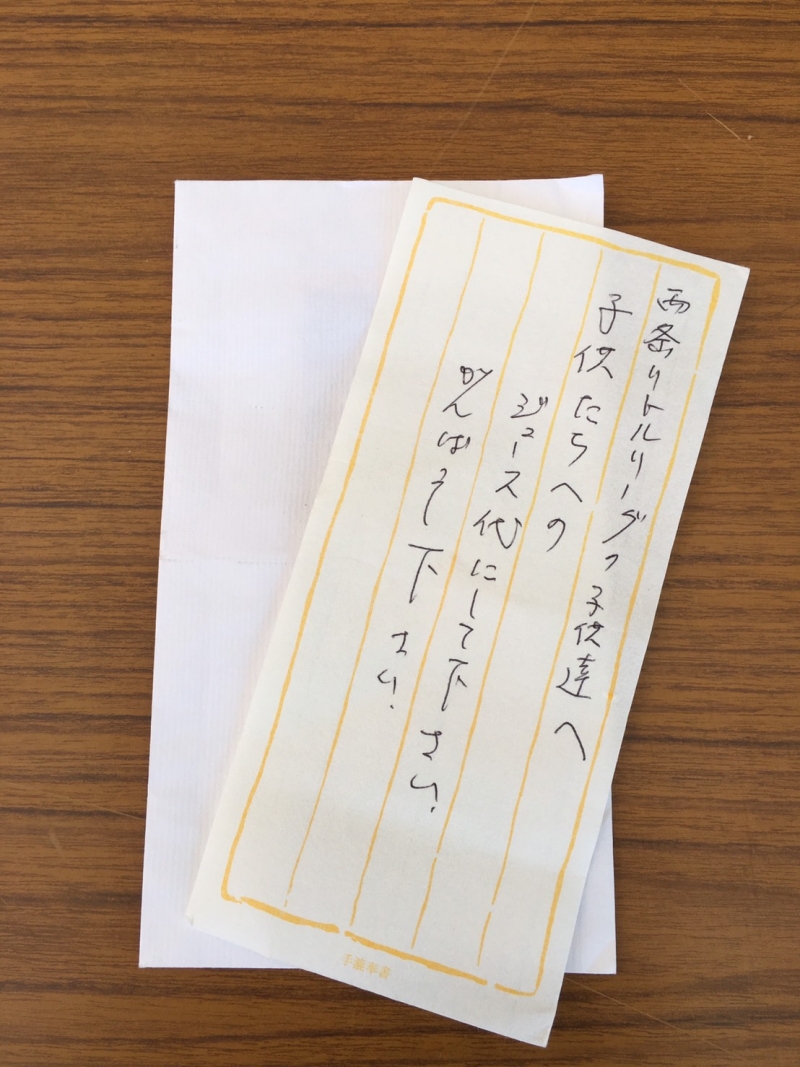 西条リトルリーグの子供達へ
子供たちへの
ジュース代にして下さい.
がんばって下さい.